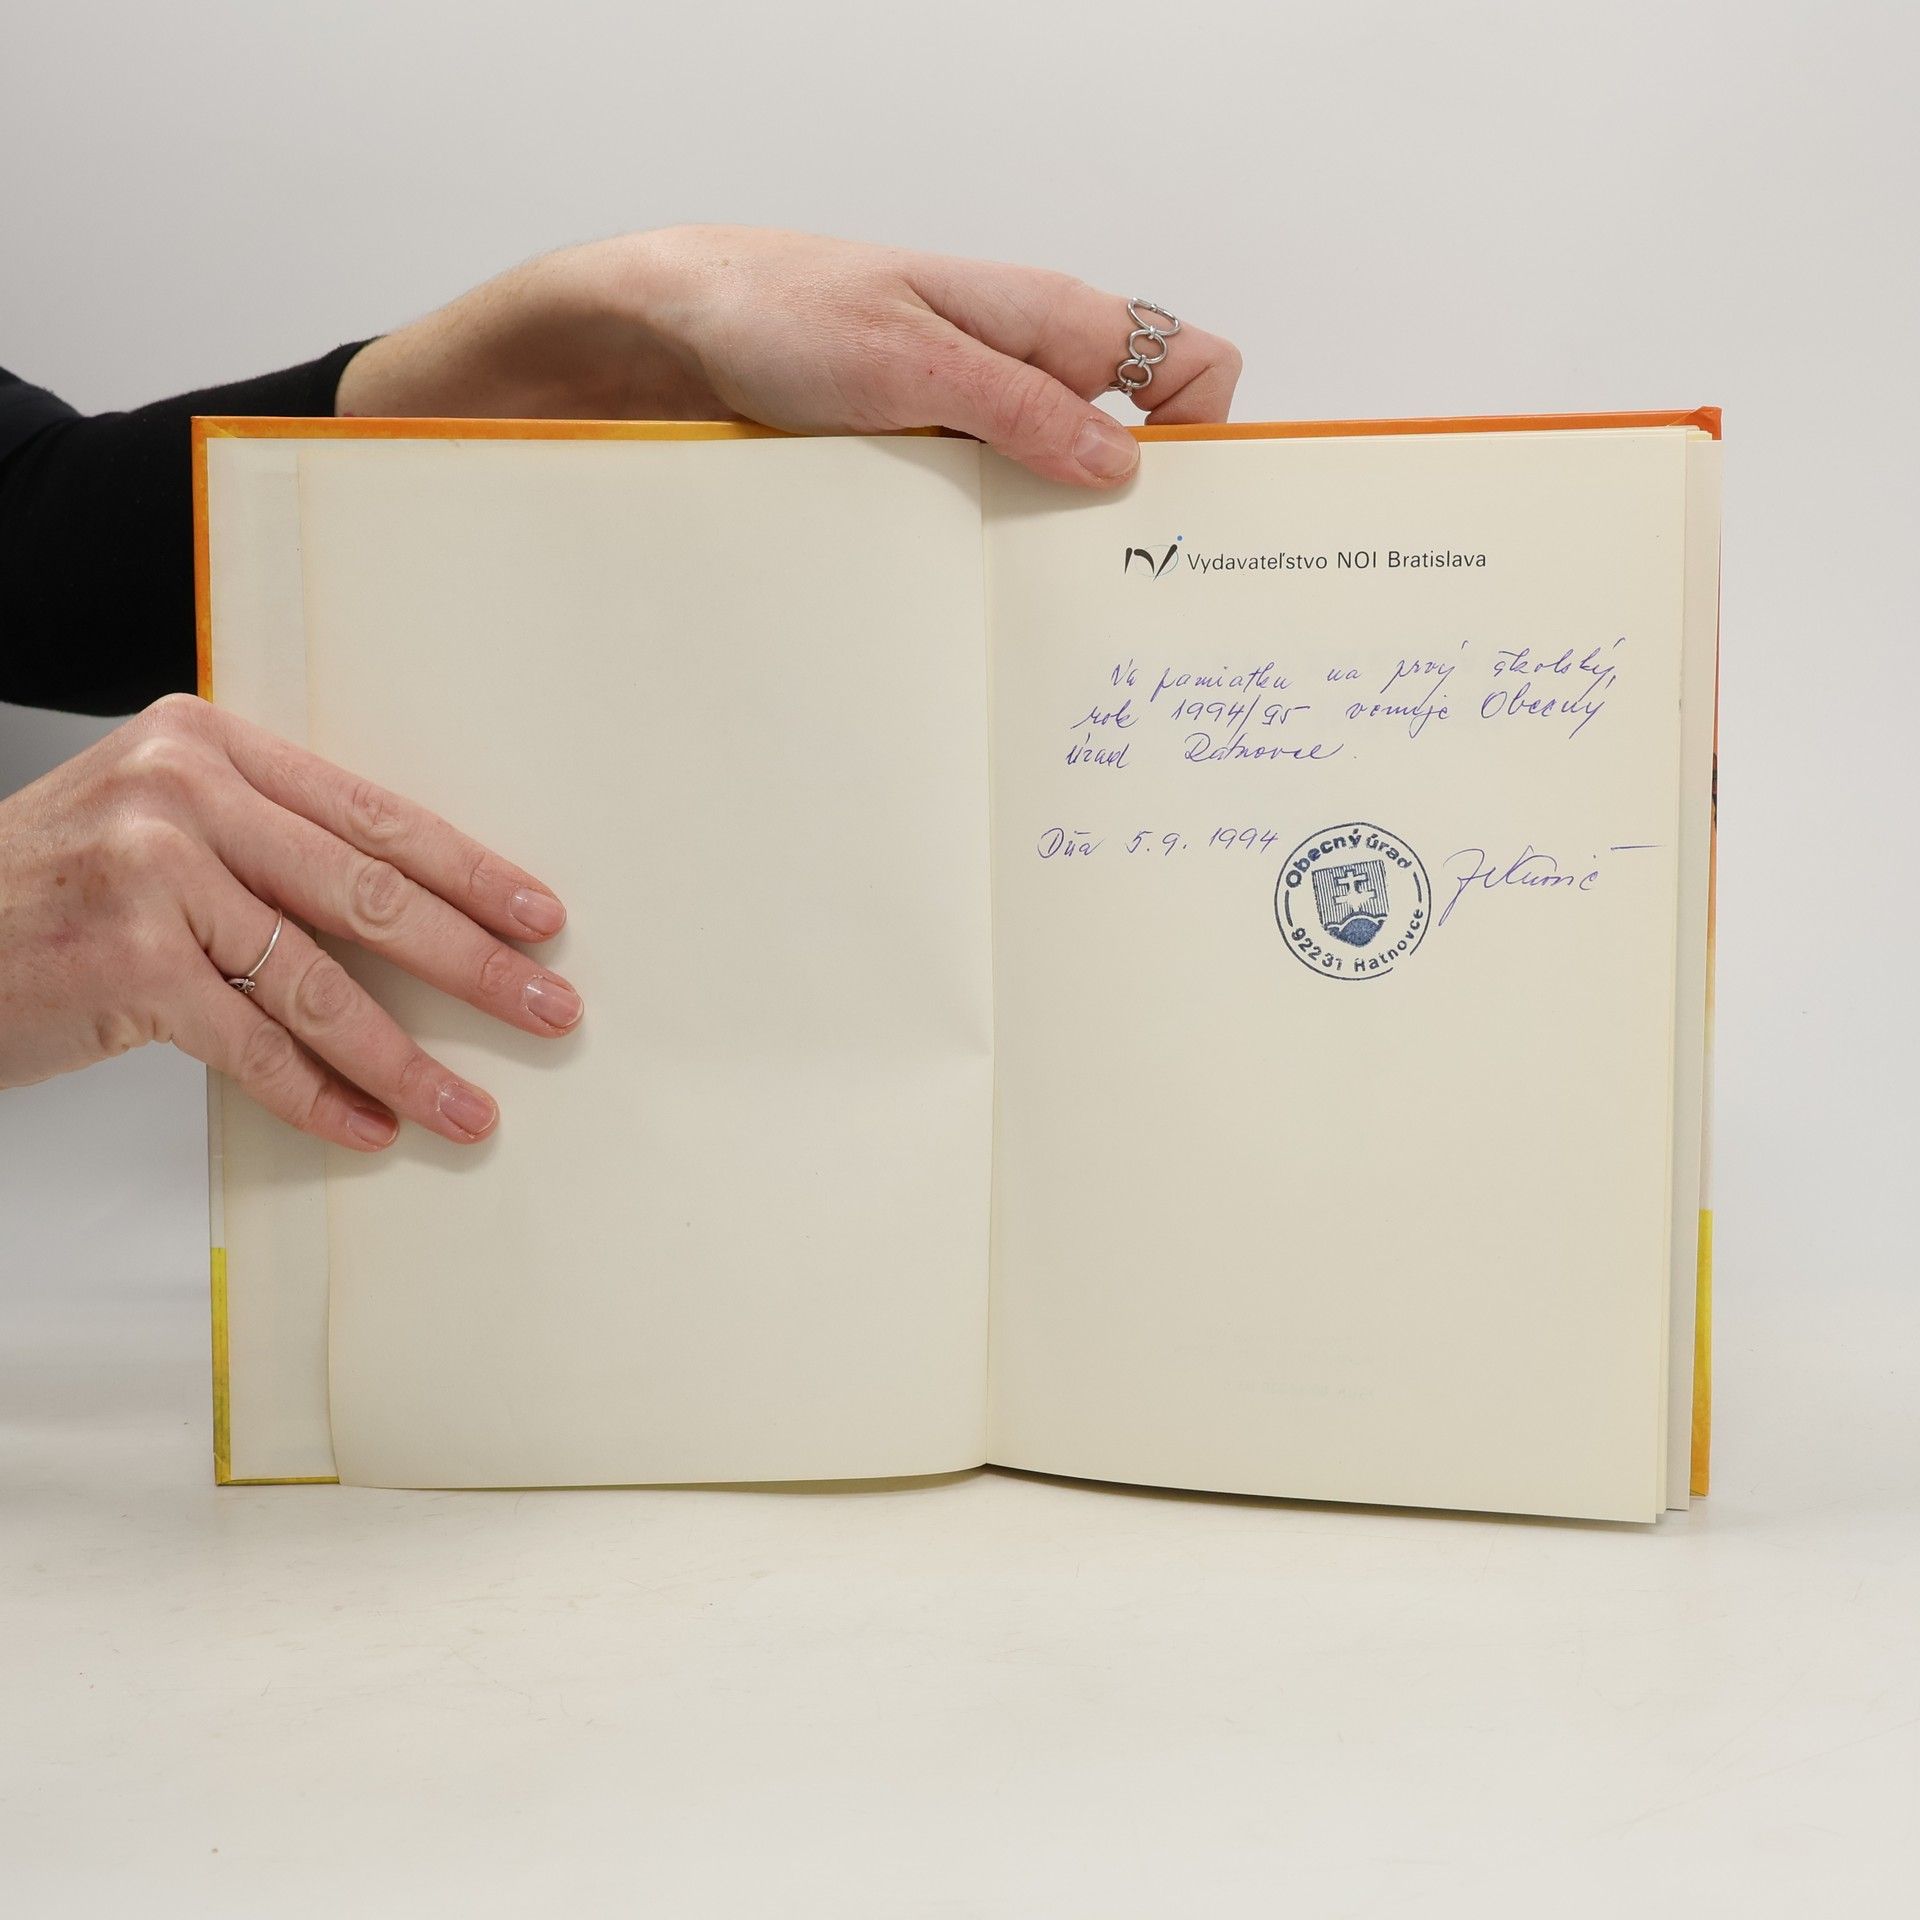 Vydavateľstvo NOI Bratislava
Na pamiatku na prvý školský
rok 1994/95 venuje Obecný
úrad Ratnovce.
Dňa 5.9.1994
Obecný úrad
92231 Ratnovce